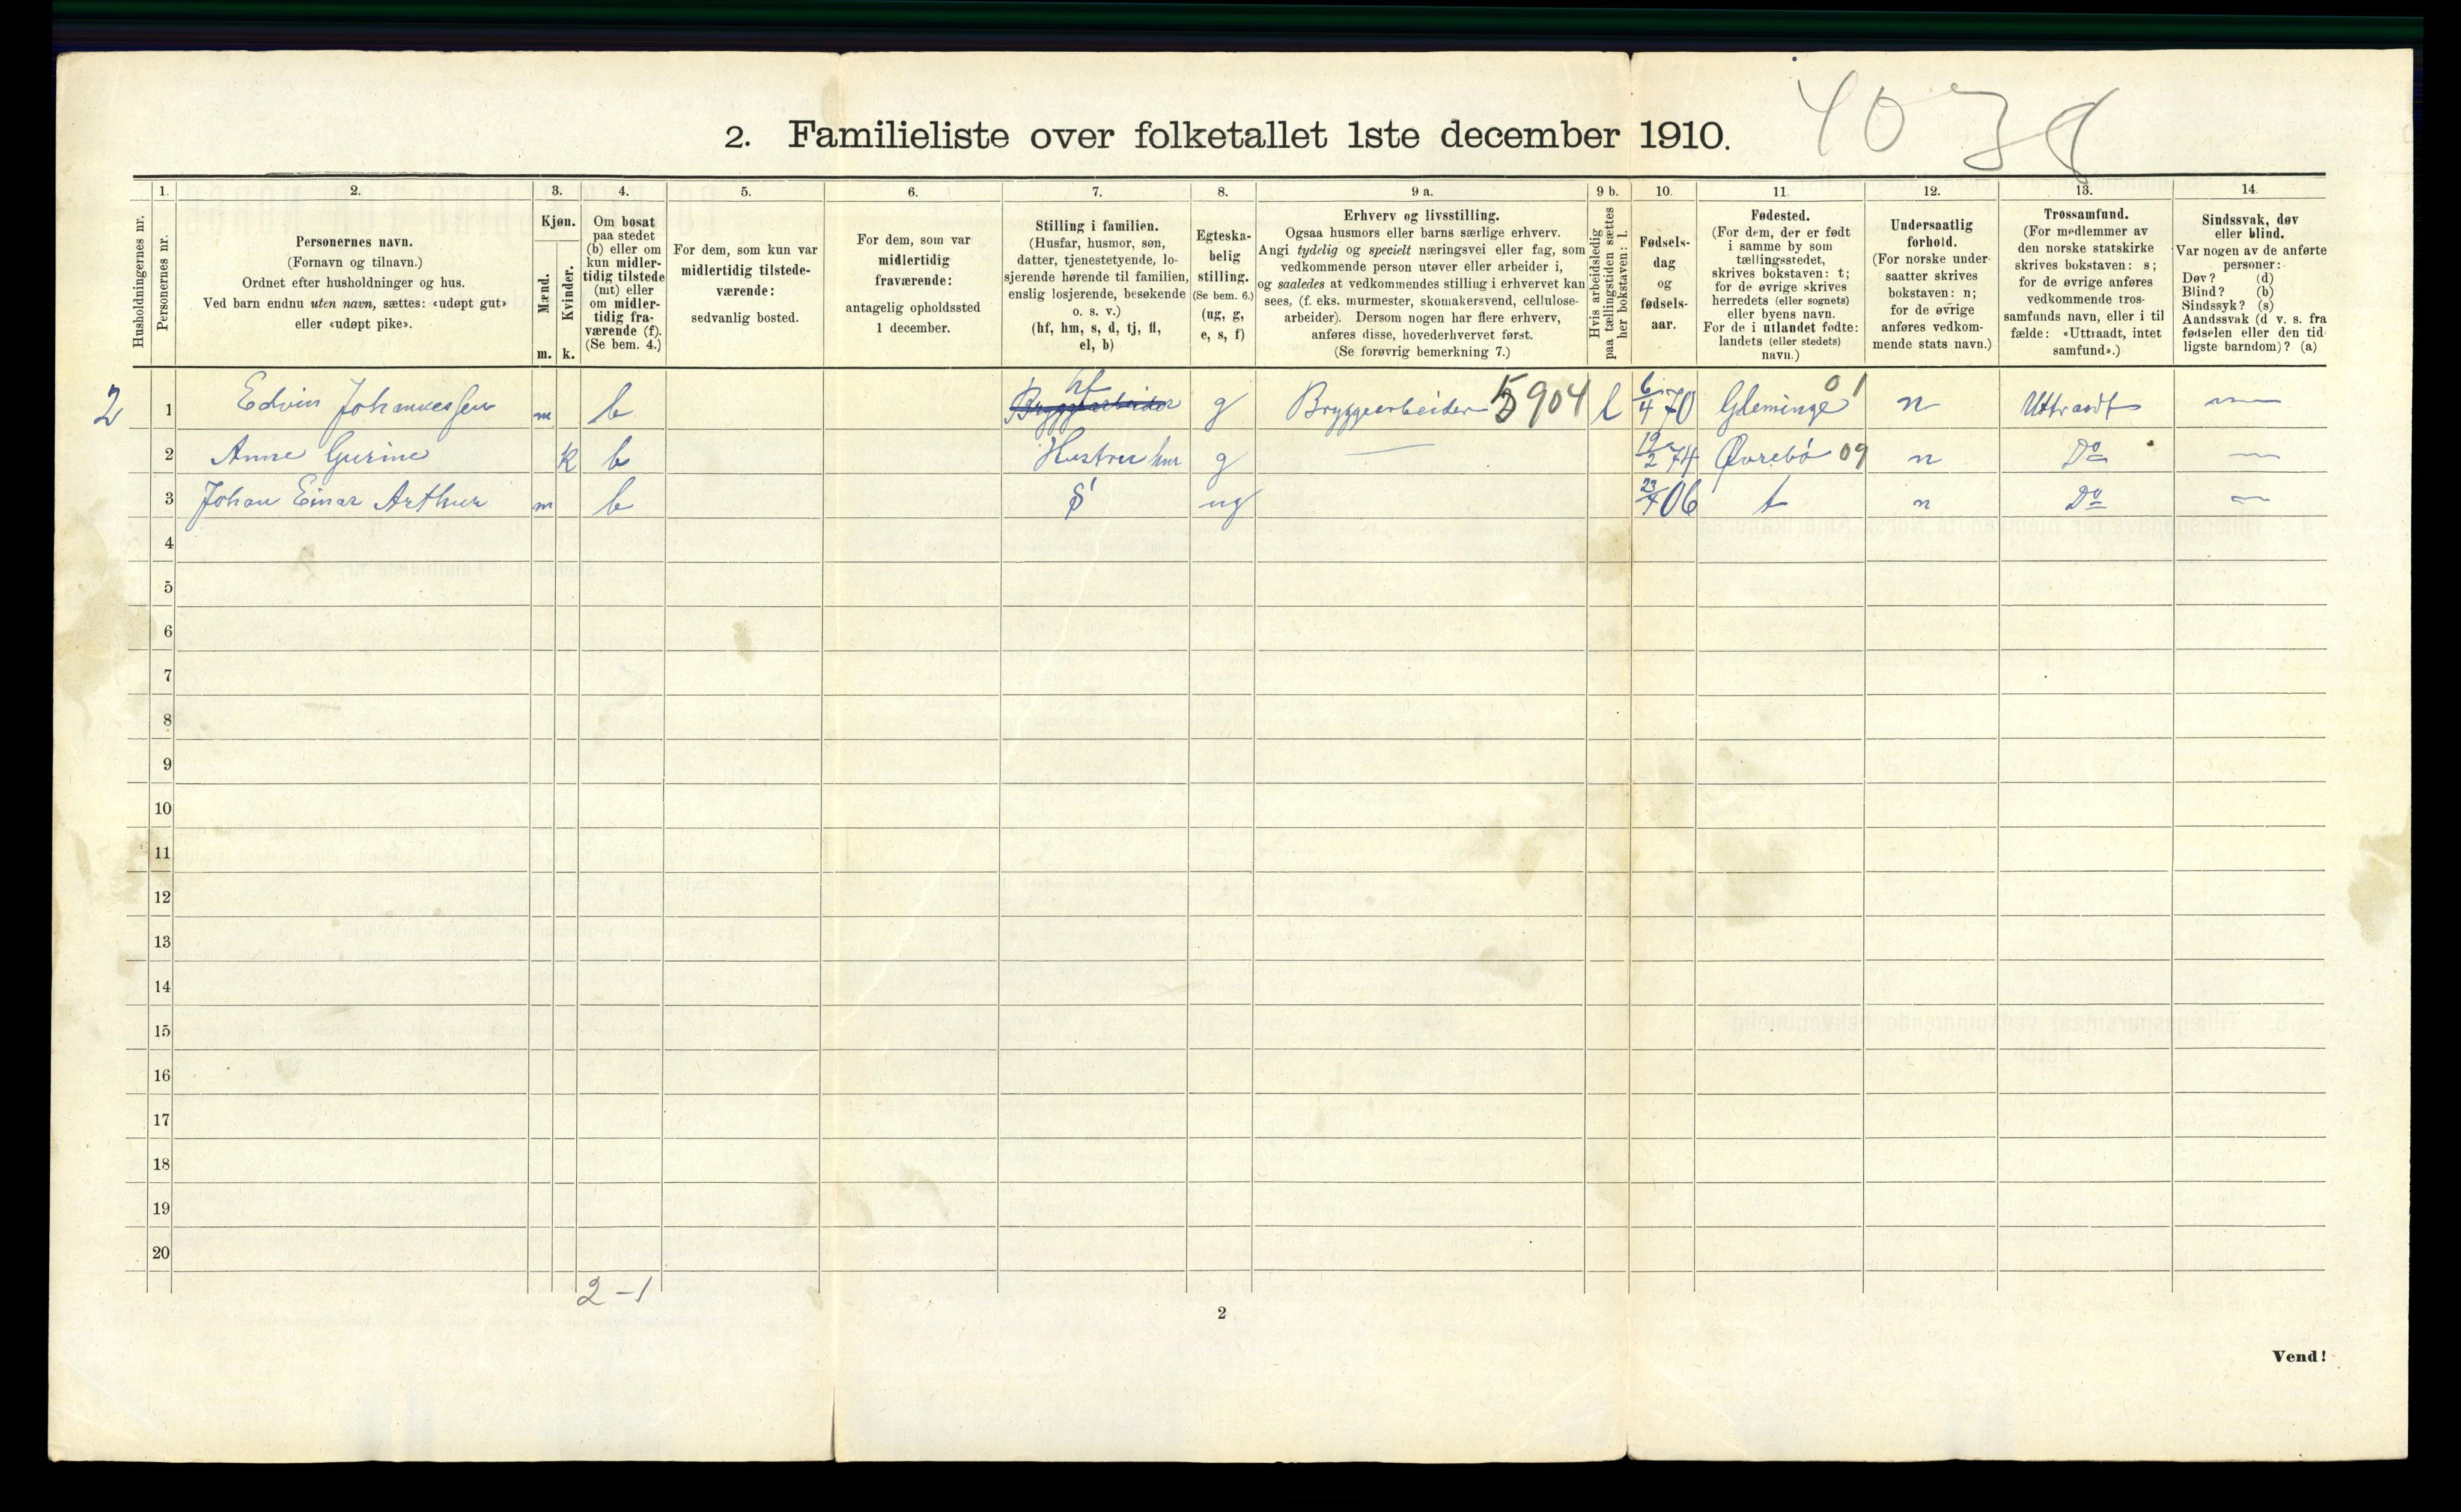 2. Familieliste over folketallet 1ste december 1910.
Husholdningernes nr.
1.
Personernes nr.
2.
Personernes navn.
(Fornavn og tilnavn.)
Ordnet efter husholdninger og hus.
Ved barn endnu uten navn, sættes: «udøpt gut»
eller «udøpt pike».
3.
Kjøn.
Mænd.
m.
Kvinder.
k.
4.
Om bosat
paa stedet
(b) eller om
kun midler-
tidig tilstede
(mt) eller
om midler-
tidig fra-
værende (f).
(Se bem. 4.)
5.
For dem, som kun var
midlertidig tilstede-
værende:
sedvanlig bosted.
6.
For dem, som var
midlertidig
fraværende:
antagelig opholdssted
1 december.
7.
Stilling i familien.
(Husfar, husmor, søn,
datter, tjenestetyende, lo-
sjerende hørende til familien,
enslig losjerende, besøkende
o. s. v.)
(hf, hm, s, d, tj, fl,
el, b)
8.
Egteska-
belig
stilling.
(Se bem. 6.)
(ug, g,
e, s, f)
9 a.
Erhverv og livsstilling.
Ogsaa husmors eller barns særlige erhverv.
Angi tydelig og specielt næringsvei eller fag, som
vedkommende person utøver eller arbeider i,
og saaledes at vedkommendes stilling i erhvervet kan
sees, (f. eks. murmester, skomakersvend, cellulose-
arbeider). Dersom nogen har flere erhverv,
anføres disse, hovederhvervet først.
(Se forøvrig bemerkning 7.)
9 b.
Hvis arbeidsledig
paa tællingstiden sættes
her bokstaven: l.
10.
Fødsels-
dag
og
fødsels-
aar.
11.
Fødested.
(For dem, der er født
i samme by som
tællingsstedet,
skrives bokstaven: t;
for de øvrige skrives
herredets (eller sognets)
eller byens navn.
For de i utlandet fødte:
landets (eller stedets)
navn.)
12.
Undersaatlig
forhold.
(For norske under-
saatter skrives
bokstaven: n;
for de øvrige
anføres vedkom-
mende stats navn.)
13.
Trossamfund.
(For medlemmer av
den norske statskirke
skrives bokstaven: s;
for de øvrige anføres
vedkommende tros-
samfunds navn, eller i til
fælde: «Uttraadt, intet
samfund».)
14.
Sindssvak, døv
eller blind.
Var nogen av de anførte
personer:
Døv? (d)
Blind? (b)
Sindssyk? (s)
Aandssvak (d v. s. fra
fødselen eller den tid-
ligste barndom)? (a)
2 1 Edvin Johannessen m b Bryggearbeider hf g Bryggearbeider 5904 l 6/4 70 Gleminge 01 n Uttraadt —
2 Anne Gurine k b Hustru hm g — 19/2 74 Øvrebö 09 n Do —
3 Johan Einar Arthur m b s ug 23/4 06 t n Do —
4
5
6
7
8
9
10
11
12
13
14
15
16
17
18
19
20
2 – 1
2
Vend!